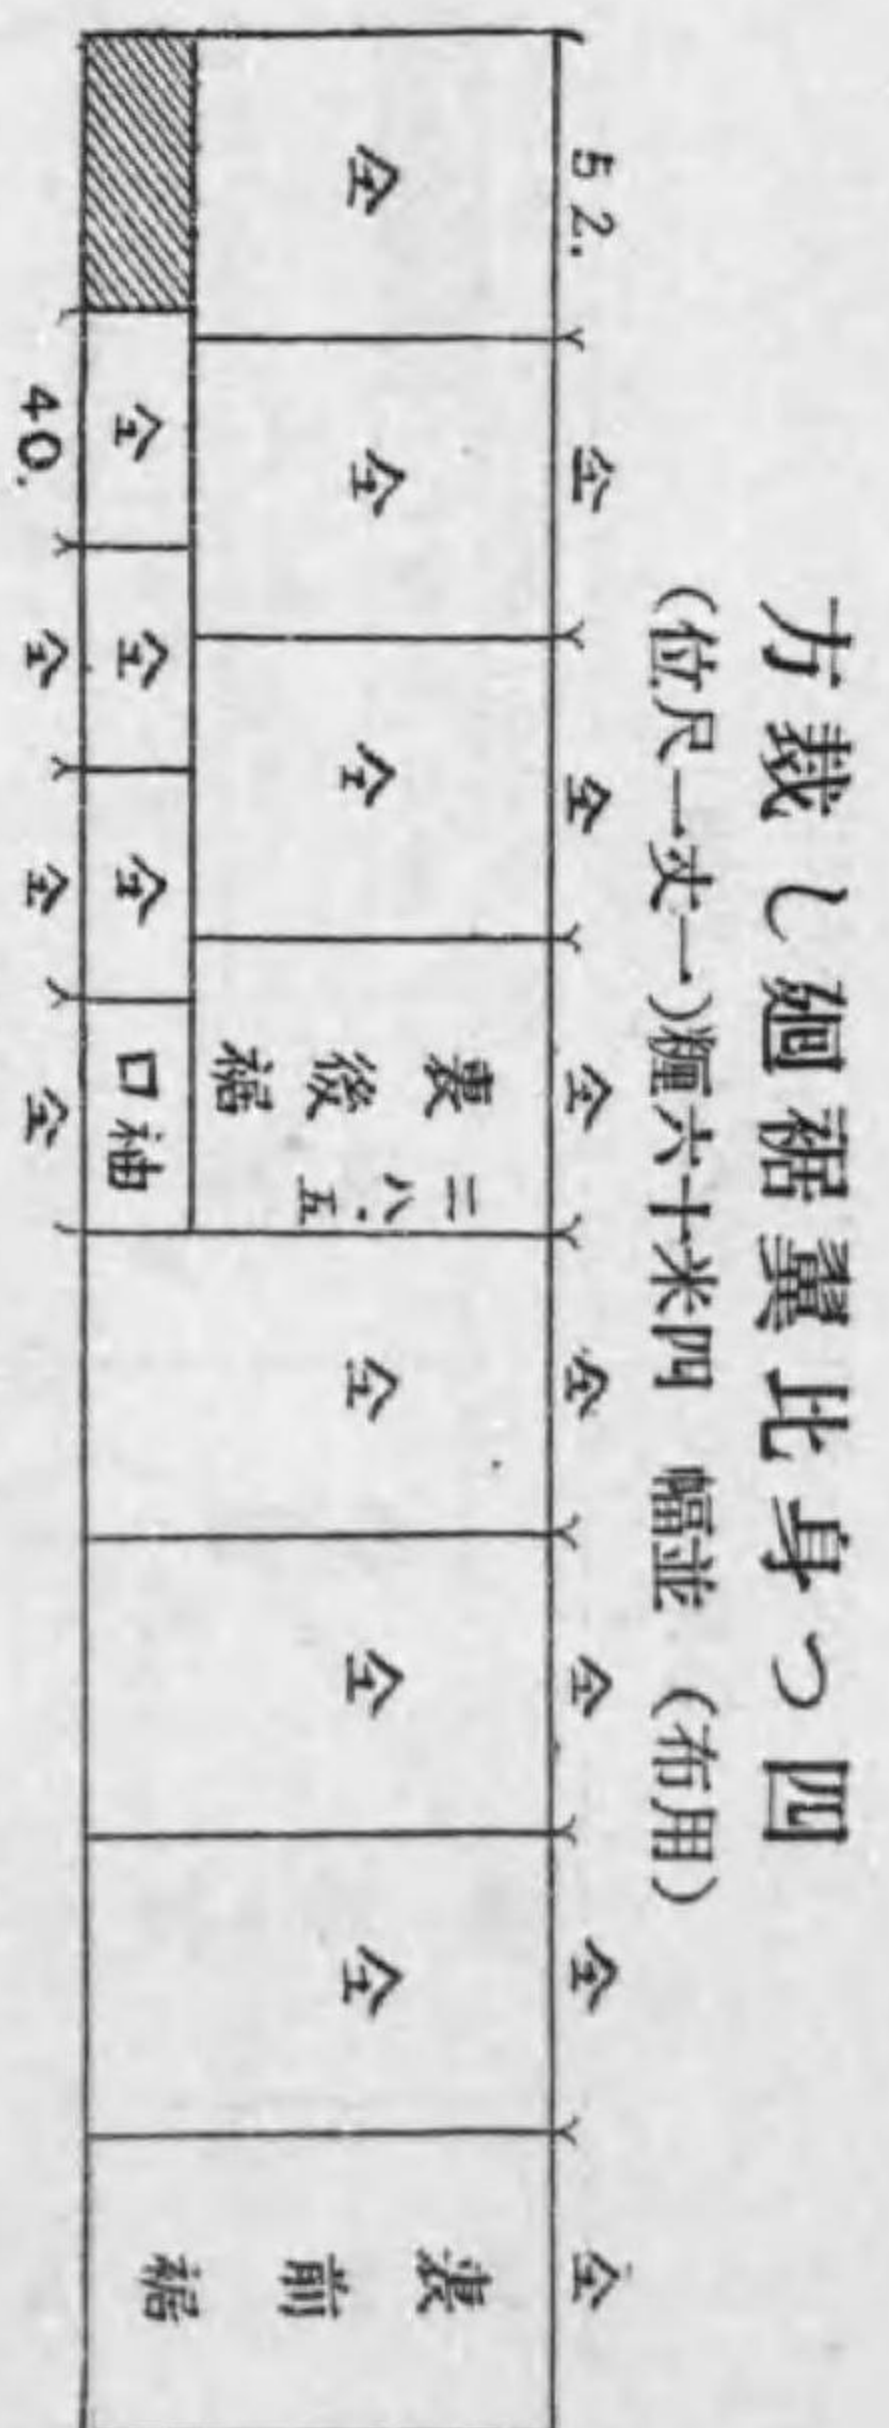 四つ身比翼裾廻し裁方
(用布) 並幅 四米十六糎(一丈一尺位)
52. 仝 仝 仝 仝 仝 仝 仝
仝
仝
仝
裏後裾
二八.五
仝
仝
仝
裏前裾
仝 仝 仝 袖口
40. 仝 仝 仝